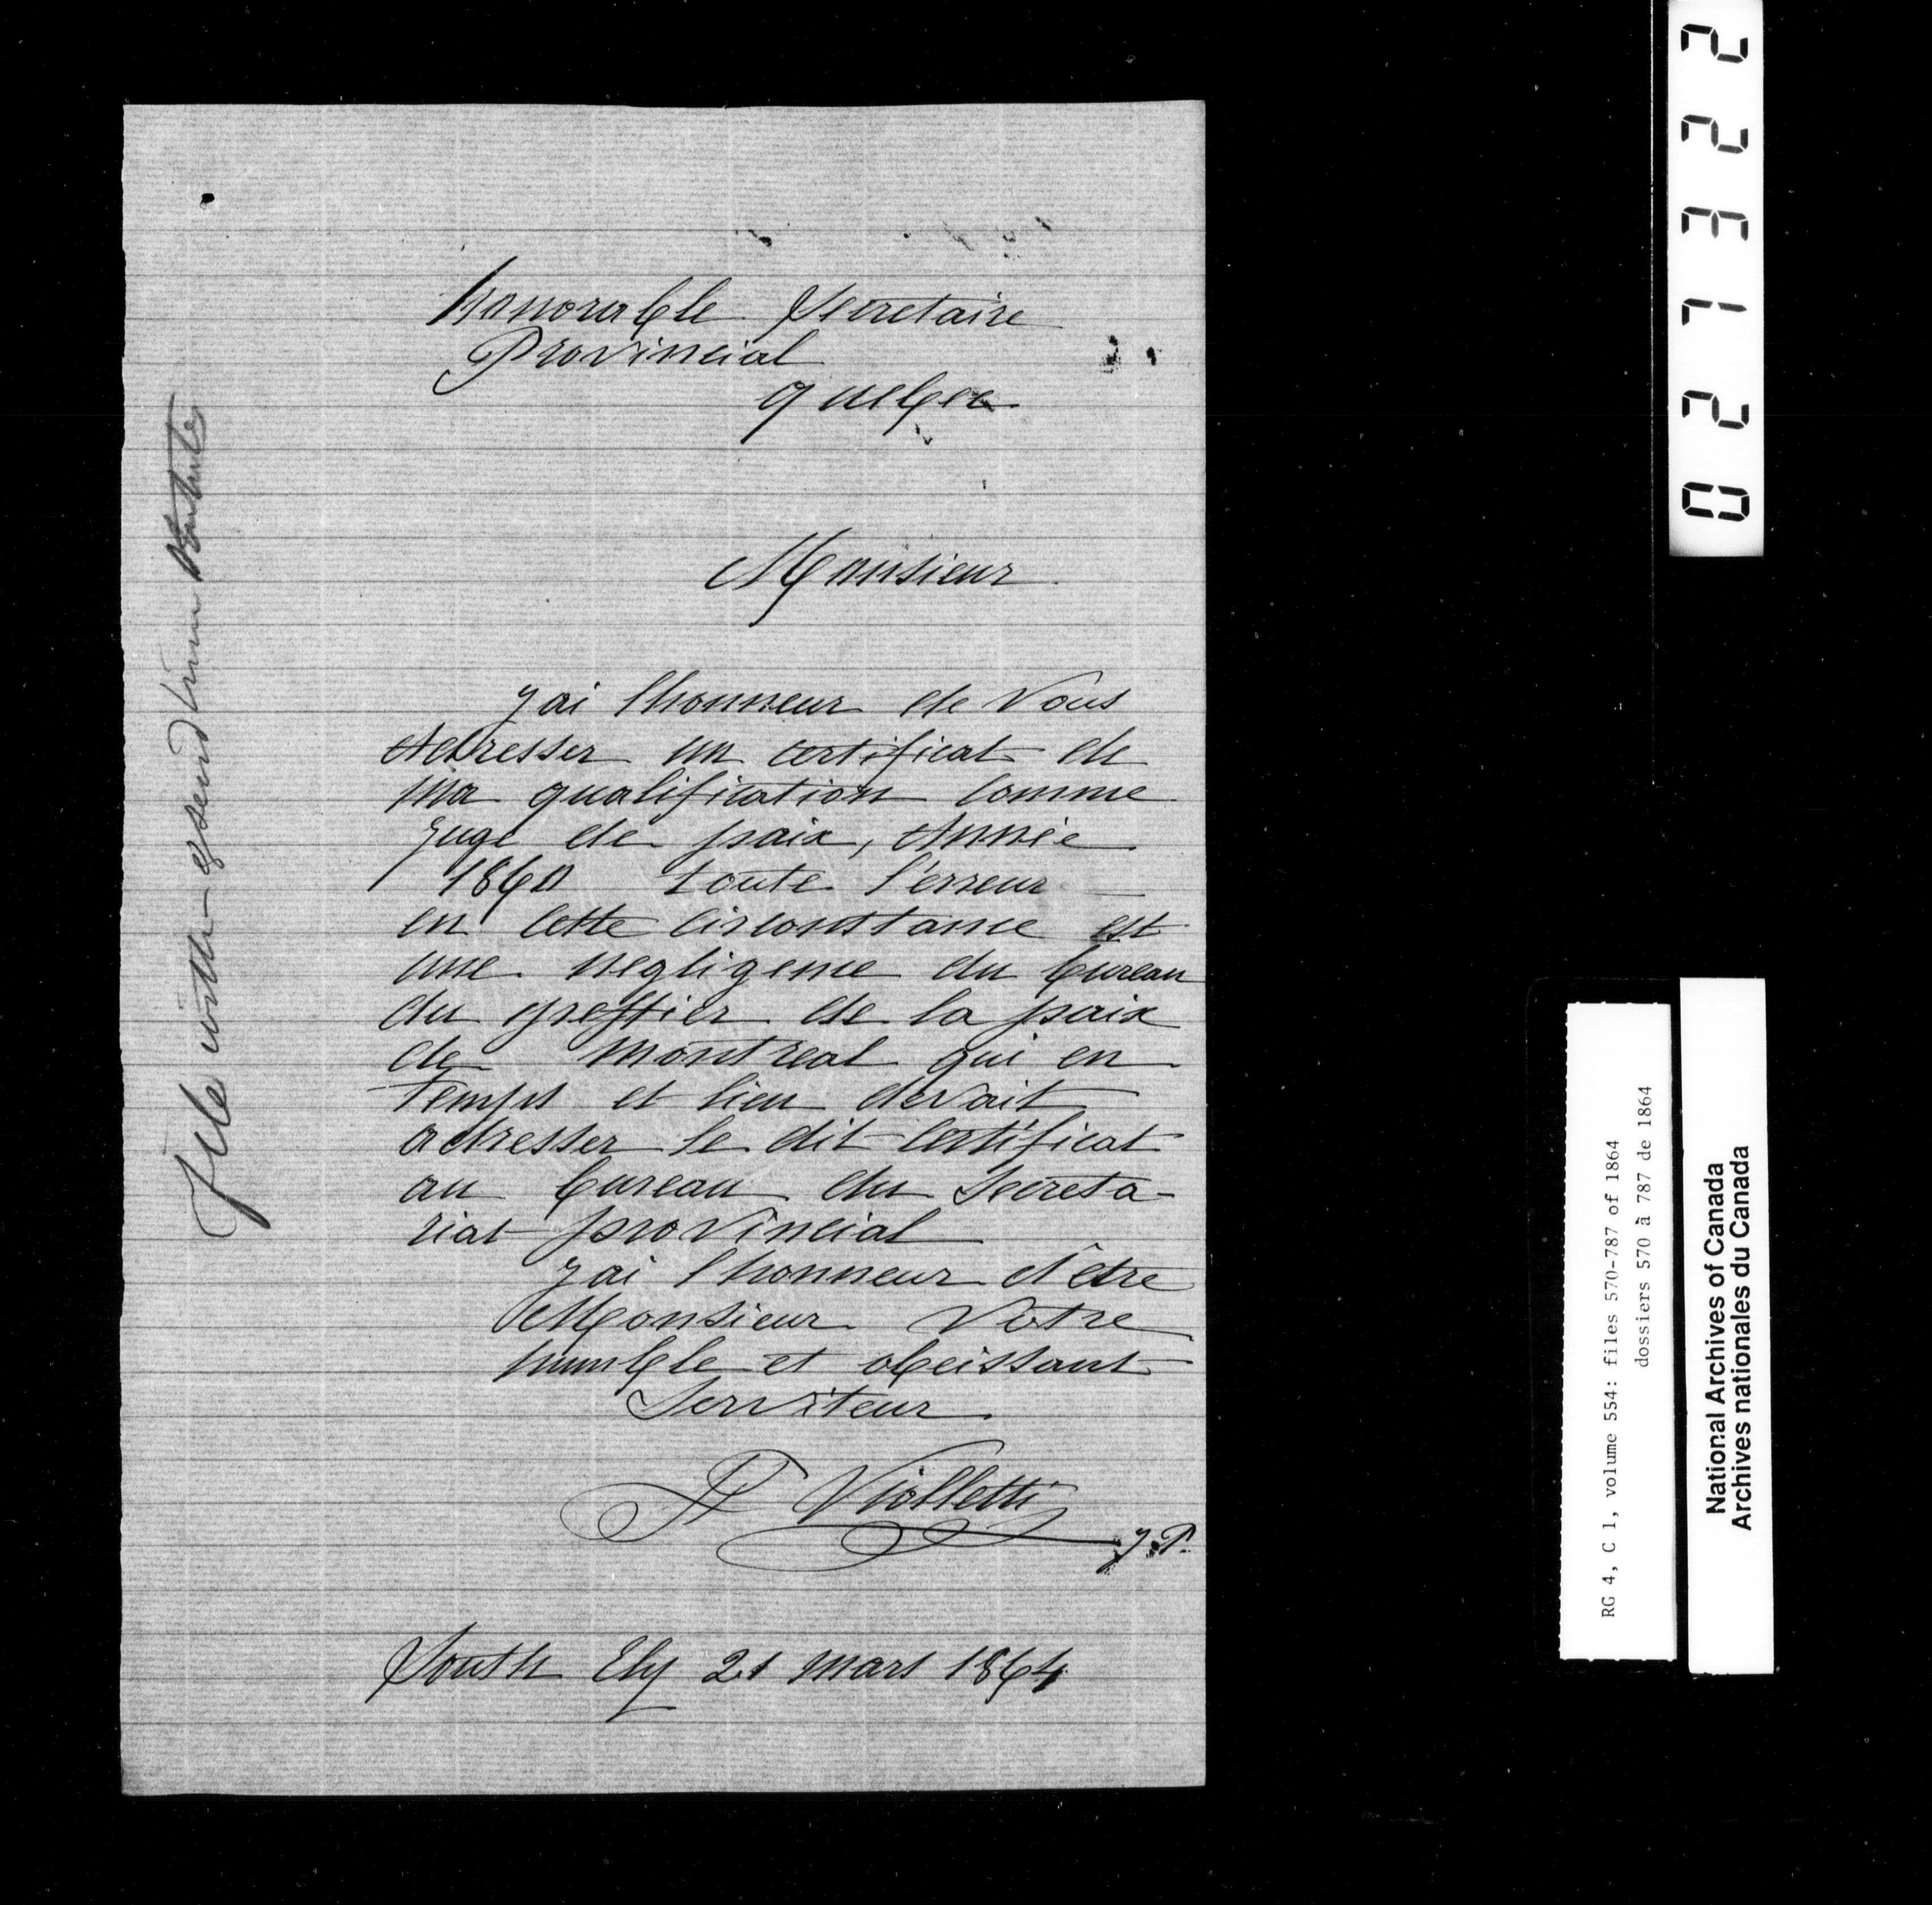 honorable Secretaire
Provincial
quebec
Monsieur
j ai lhonneur de Vous
Adresser un certificat de
ma qualification comme
juge de paix, Année
1860 toute l'erreur
en cette circonstance est
une negligence du bureau
du greffier de la paix
de montreal qui en
temps et lieu devait
adresser le dit certificat
au bureau du Secreta-
riat provincial
j ai lhonneur d'être
Monsieur Votre
humble et obeissant
Serviteur
Violletti
J.P.
South Ely 21 mars 1864
File with & send him
0 2 7 3 2 2
RG 4, C 1, volume 554: files 570-787 of 1864
dossiers 570 à 787 de 1864
National Archives of Canada
Archives nationales du Canada